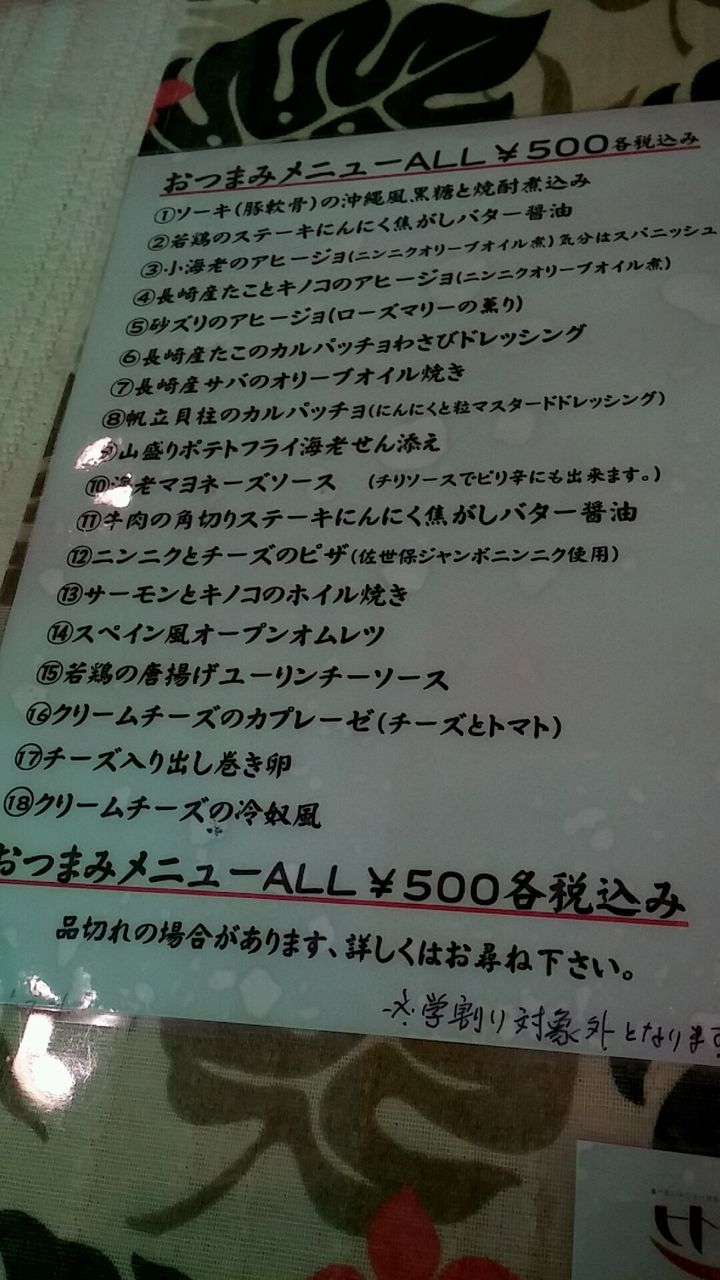 おつまみメニューALL￥500各税込み
①ソーキ(豚軟骨)の沖縄風黒糖と焼酎煮込み
②若鶏のステーキにんにく焦がしバター醤油
③小海老のアヒージョ(ニンニクオリーブオイル煮)気分はスパニッシュ
④長崎産たことキノコのアヒージョ(ニンニクオリーブオイル煮)
⑤砂ズリのアヒージョ(ローズマリーの薫り)
⑥長崎産たこのカルパッチョわさびドレッシング
⑦長崎産サバのオリーブオイル焼き
⑧帆立貝柱のカルパッチョ(にんにくと粒マスタードドレッシング)
⑨山盛りポテトフライ海老せん添え
⑩海老マヨネーズソース (チリソースでピリ辛にも出来ます。)
⑪牛肉の角切りステーキにんにく焦がしバター醤油
⑫ニンニクとチーズのピザ(佐世保ジャンボニンニク使用)
⑬サーモンとキノコのホイル焼き
⑭スペイン風オープンオムレツ
⑮若鶏の唐揚げユーリンチーソース
⑯クリームチーズのカプレーゼ(チーズとトマト)
⑰チーズ入り出し巻き卵
⑱クリームチーズの冷奴風
おつまみメニューALL￥500各税込み
品切れの場合があります、詳しくはお尋ね下さい。
※学割り対象外となります